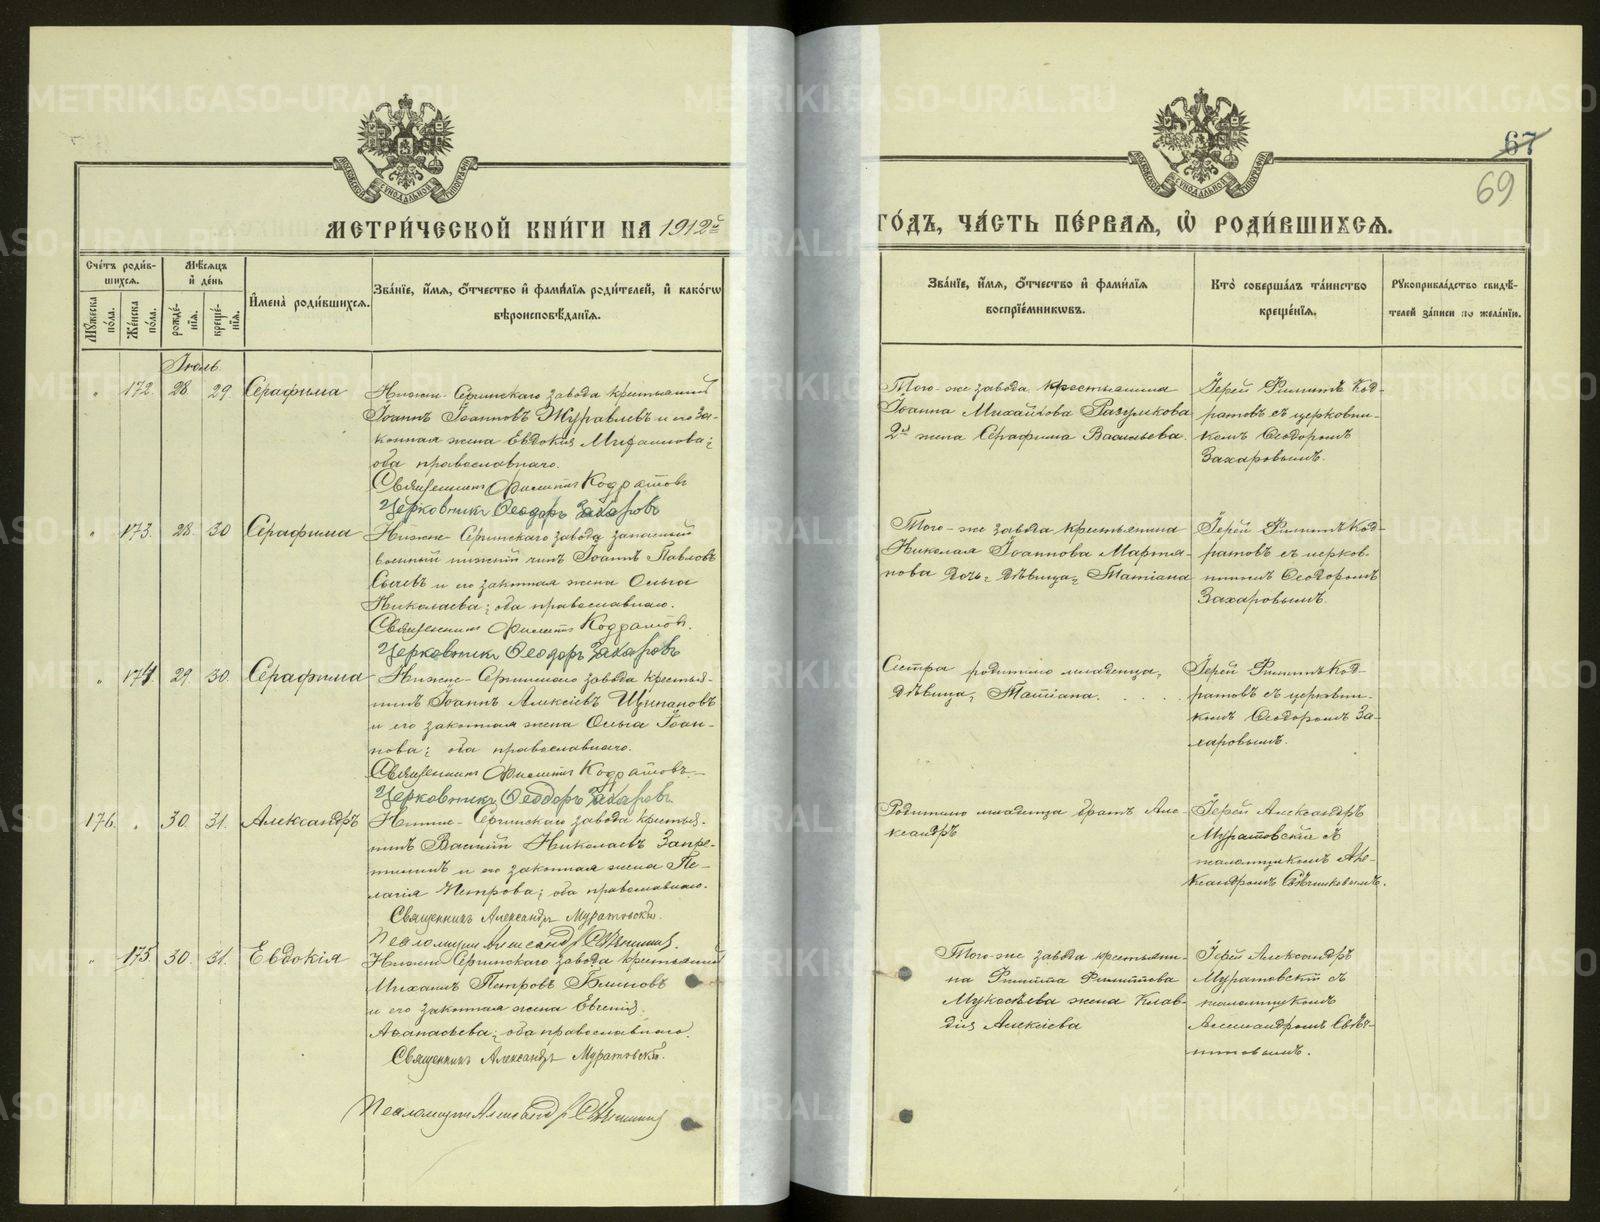 67
69
МЕТРИ́ЧЕСКОЙ КНИ́ГИ НА 1912й
ГО́ДЪ, ЧА́СТЬ ПЕ́РВАЯ, Ѡ РОДИ́ВШИХСЯ.
Сче́тъ роди́вшихся.
Му́жеска по́ла.
Же́нска по́ла.
Мѣ́сяцъ и де́нь
рожде́нія.
креще́нія.
И́мена роди́вшихся.
Зва́ніе, и́мя, о́тчество и фами́лія роди́телей, и како́гѡ
вѣроисповѣ́данія.
Зва́ніе, и́мя, о́тчество и фами́лія
воспріе́мникѡвъ.
Кто̀ соверша́лъ та́инство
креще́нія.
Рукоприкла́дство свидѣ́-
телей за́писи по жела́нію.
Іюль.
172. 28. 29. Серафима
Нижне-Сергинскаго завода крестьянинъ
Іоаннъ Іоанновъ Журавлевъ и его за-
конная жена Евдокия Михаилова;
оба православнаго.
Священникъ Филиппъ Кодратовъ
Церковникъ Ѳеодоръ Захаровъ
Того-же завода крестьянина
Іоанна Михайлова Разуликова
2я жена Серафима Васильева.
Іерей Филиппъ Код-
ратовъ съ церковни-
комъ Ѳеодоромъ
Захаровымъ.
173. 28. 30 Серафима
Нижне-Сергинскаго завода запасный
военный нижній чинъ Іоаннъ Павловъ
Сычевъ и его законная жена Ольга
Николаева; оба православнаго.
Священникъ Филиппъ Кодратовъ.
Церковникъ Ѳеодоръ Захаровъ
Того-же завода крестьянина
Николая Іоаннова Мартья-
нова дочь-дѣвица Татіана
Іерей Филиппъ Код-
ратовъ съ церков-
никомъ Ѳеодоромъ
Захаровымъ.
174. 29. 30. Серафима
Нижне-Сергинскаго завода крестья-
нинъ Іоаннъ Алексіевъ Щипановъ
и его законная жена Ольга Іоан-
нова; оба православнаго.
Священникъ Филиппъ Кодратовъ.
Церковникъ Ѳеодоръ Захаровъ
Сестра родителю младенца,
дѣвица, Татіана.
Іерей Филиппъ Код-
ратовъ съ церковни-
комъ Ѳеодоромъ За-
харовымъ.
176. 30. 31. Александръ
Нижне-Сергинскаго завода крестья-
нинъ Василій Николаевъ
и его законная жена Пе-
лагія Петрова; оба православнаго.
Священникъ Александръ Муратовскій.
Псаломщикъ Александръ
Родителю младенца братъ Але-
ксандръ
Іерей Александръ
Муратовскій съ
псаломщикомъ Але-
ксандромъ
175. 30. 31. Евдокія
Нижне-Сергинскаго завода крестьянинъ
Михаилъ Петровъ Блиновъ
и его законная жена Евгенія
Аѳанасьева; оба православнаго.
Священникъ Александръ Муратовскій.
Псаломщикъ Александръ
Того-же завода крестьяни-
на Филиппа Филиппова
Мукосѣева жена Клав-
дія Алексіева
Іерей Александръ
Муратовскій съ
псаломщикомъ
Александромъ